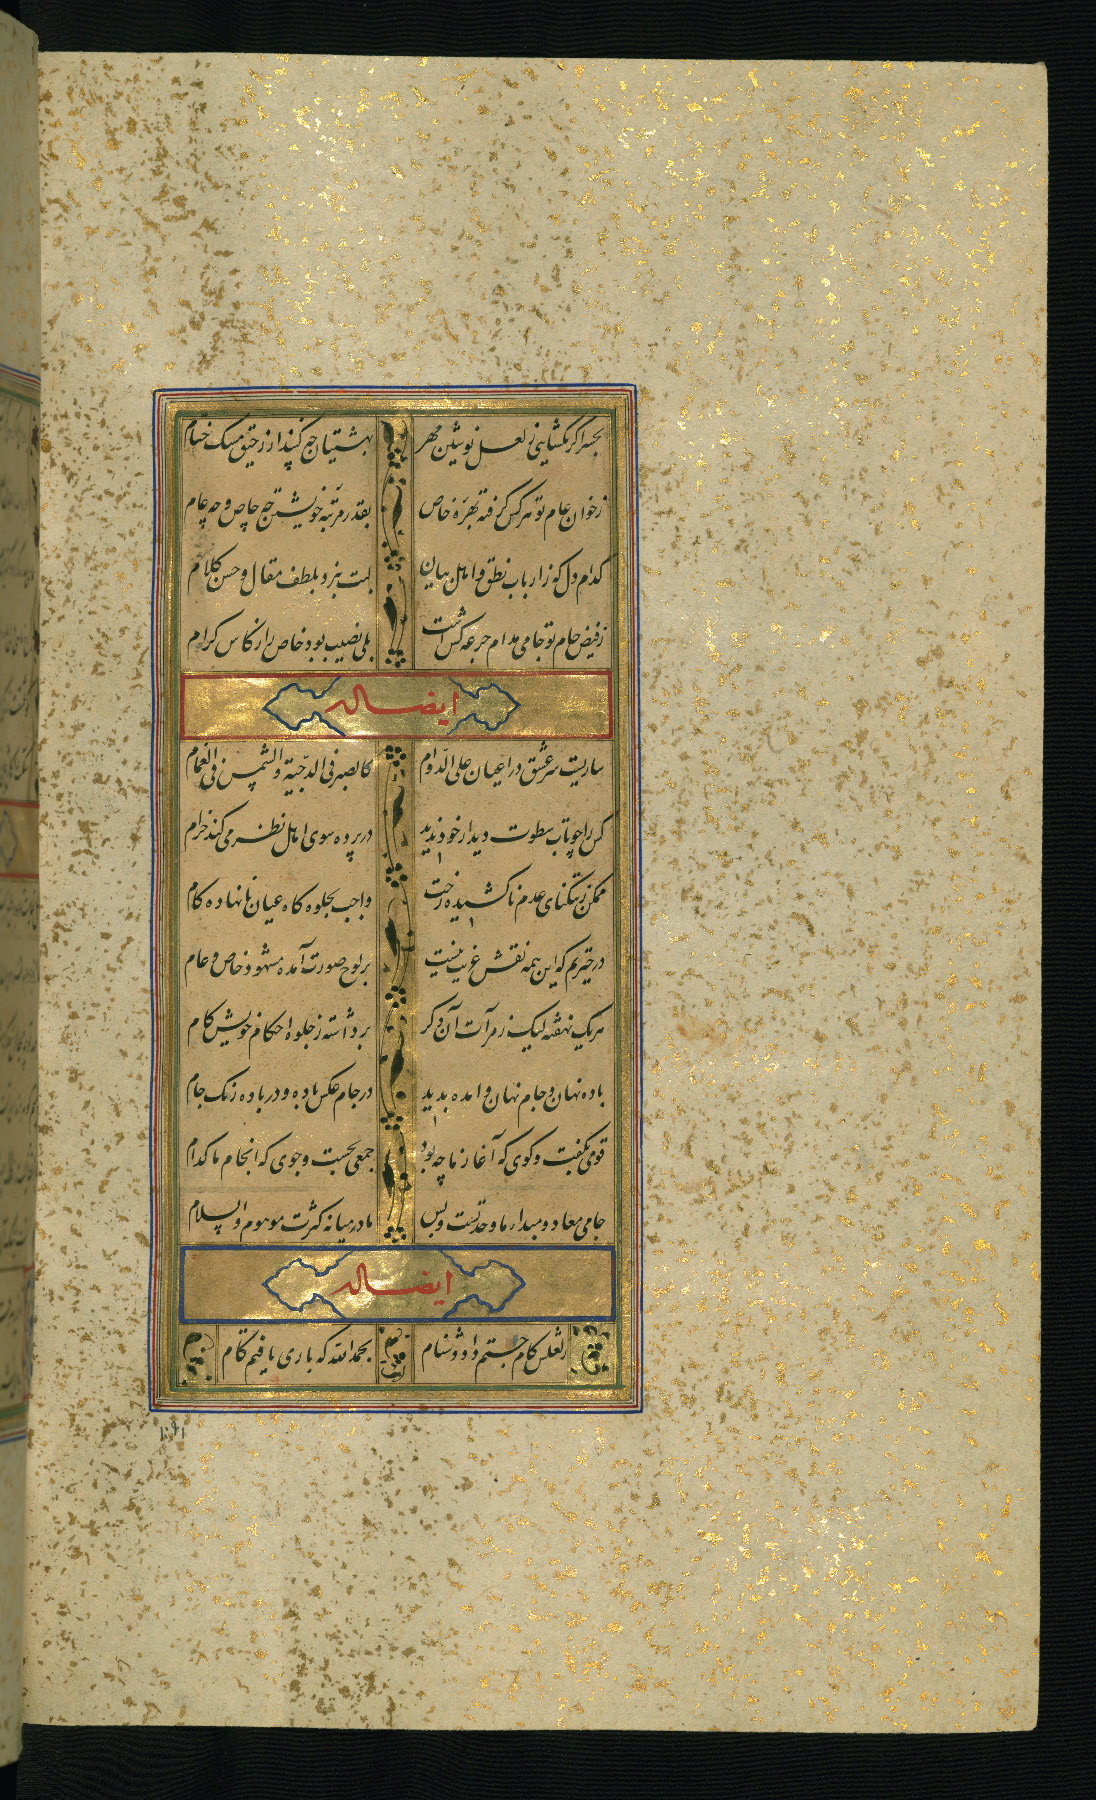 بحشر اگر بگشایی ز لعل نوشین مهر بهشتیان چه کنند از رحیق مسک ختام
ز خوان عام تو هر کس گرفته بهرهٔ خاص بقدر مرتبه خویشتن چه خاص و چه عام
کدام دل که ز ارباب نطق و اهل بیان لبت نبرد بلطف مقال و حسن کلام
ز فیض جام تو جامی مدام جرعه کش است بلی نصیب بود خاص را ز کاس کرام
ایضا له
ساریست سر عشق در اعیان علی الدوام کالبدر فی الدجیة والشمس فی الغمام
کس را چو تاب سطوت دیدار خود ندید در پرده سوی اهل نظر می کند خرام
ممکن ز تنگنای عدم ناکشیده رخت واجب بجلوه گاه عیان نانهاده گام
در حیرتم که این همه نقش غریب چیست بر لوح صورت آمده مشهود خاص و عام
هر یک نهفته لیک ز مرآت آن دگر برداشته ز جلوه احکام خویش کام
باده نهان و جام نهان و آمده پدید در جام عکس باده و در باده رنگ جام
قومی بگفت و گوی که آغاز ما چه بود جمعی بجست و جوی که انجام ما کدام
جامی معاد و مبداء ما وحدتست و بس ما در میانه کثرت موهوم والسلام
ایضا له
ز لعلش کام جستم داد دشنام بحمد الله که باری یافتم کام